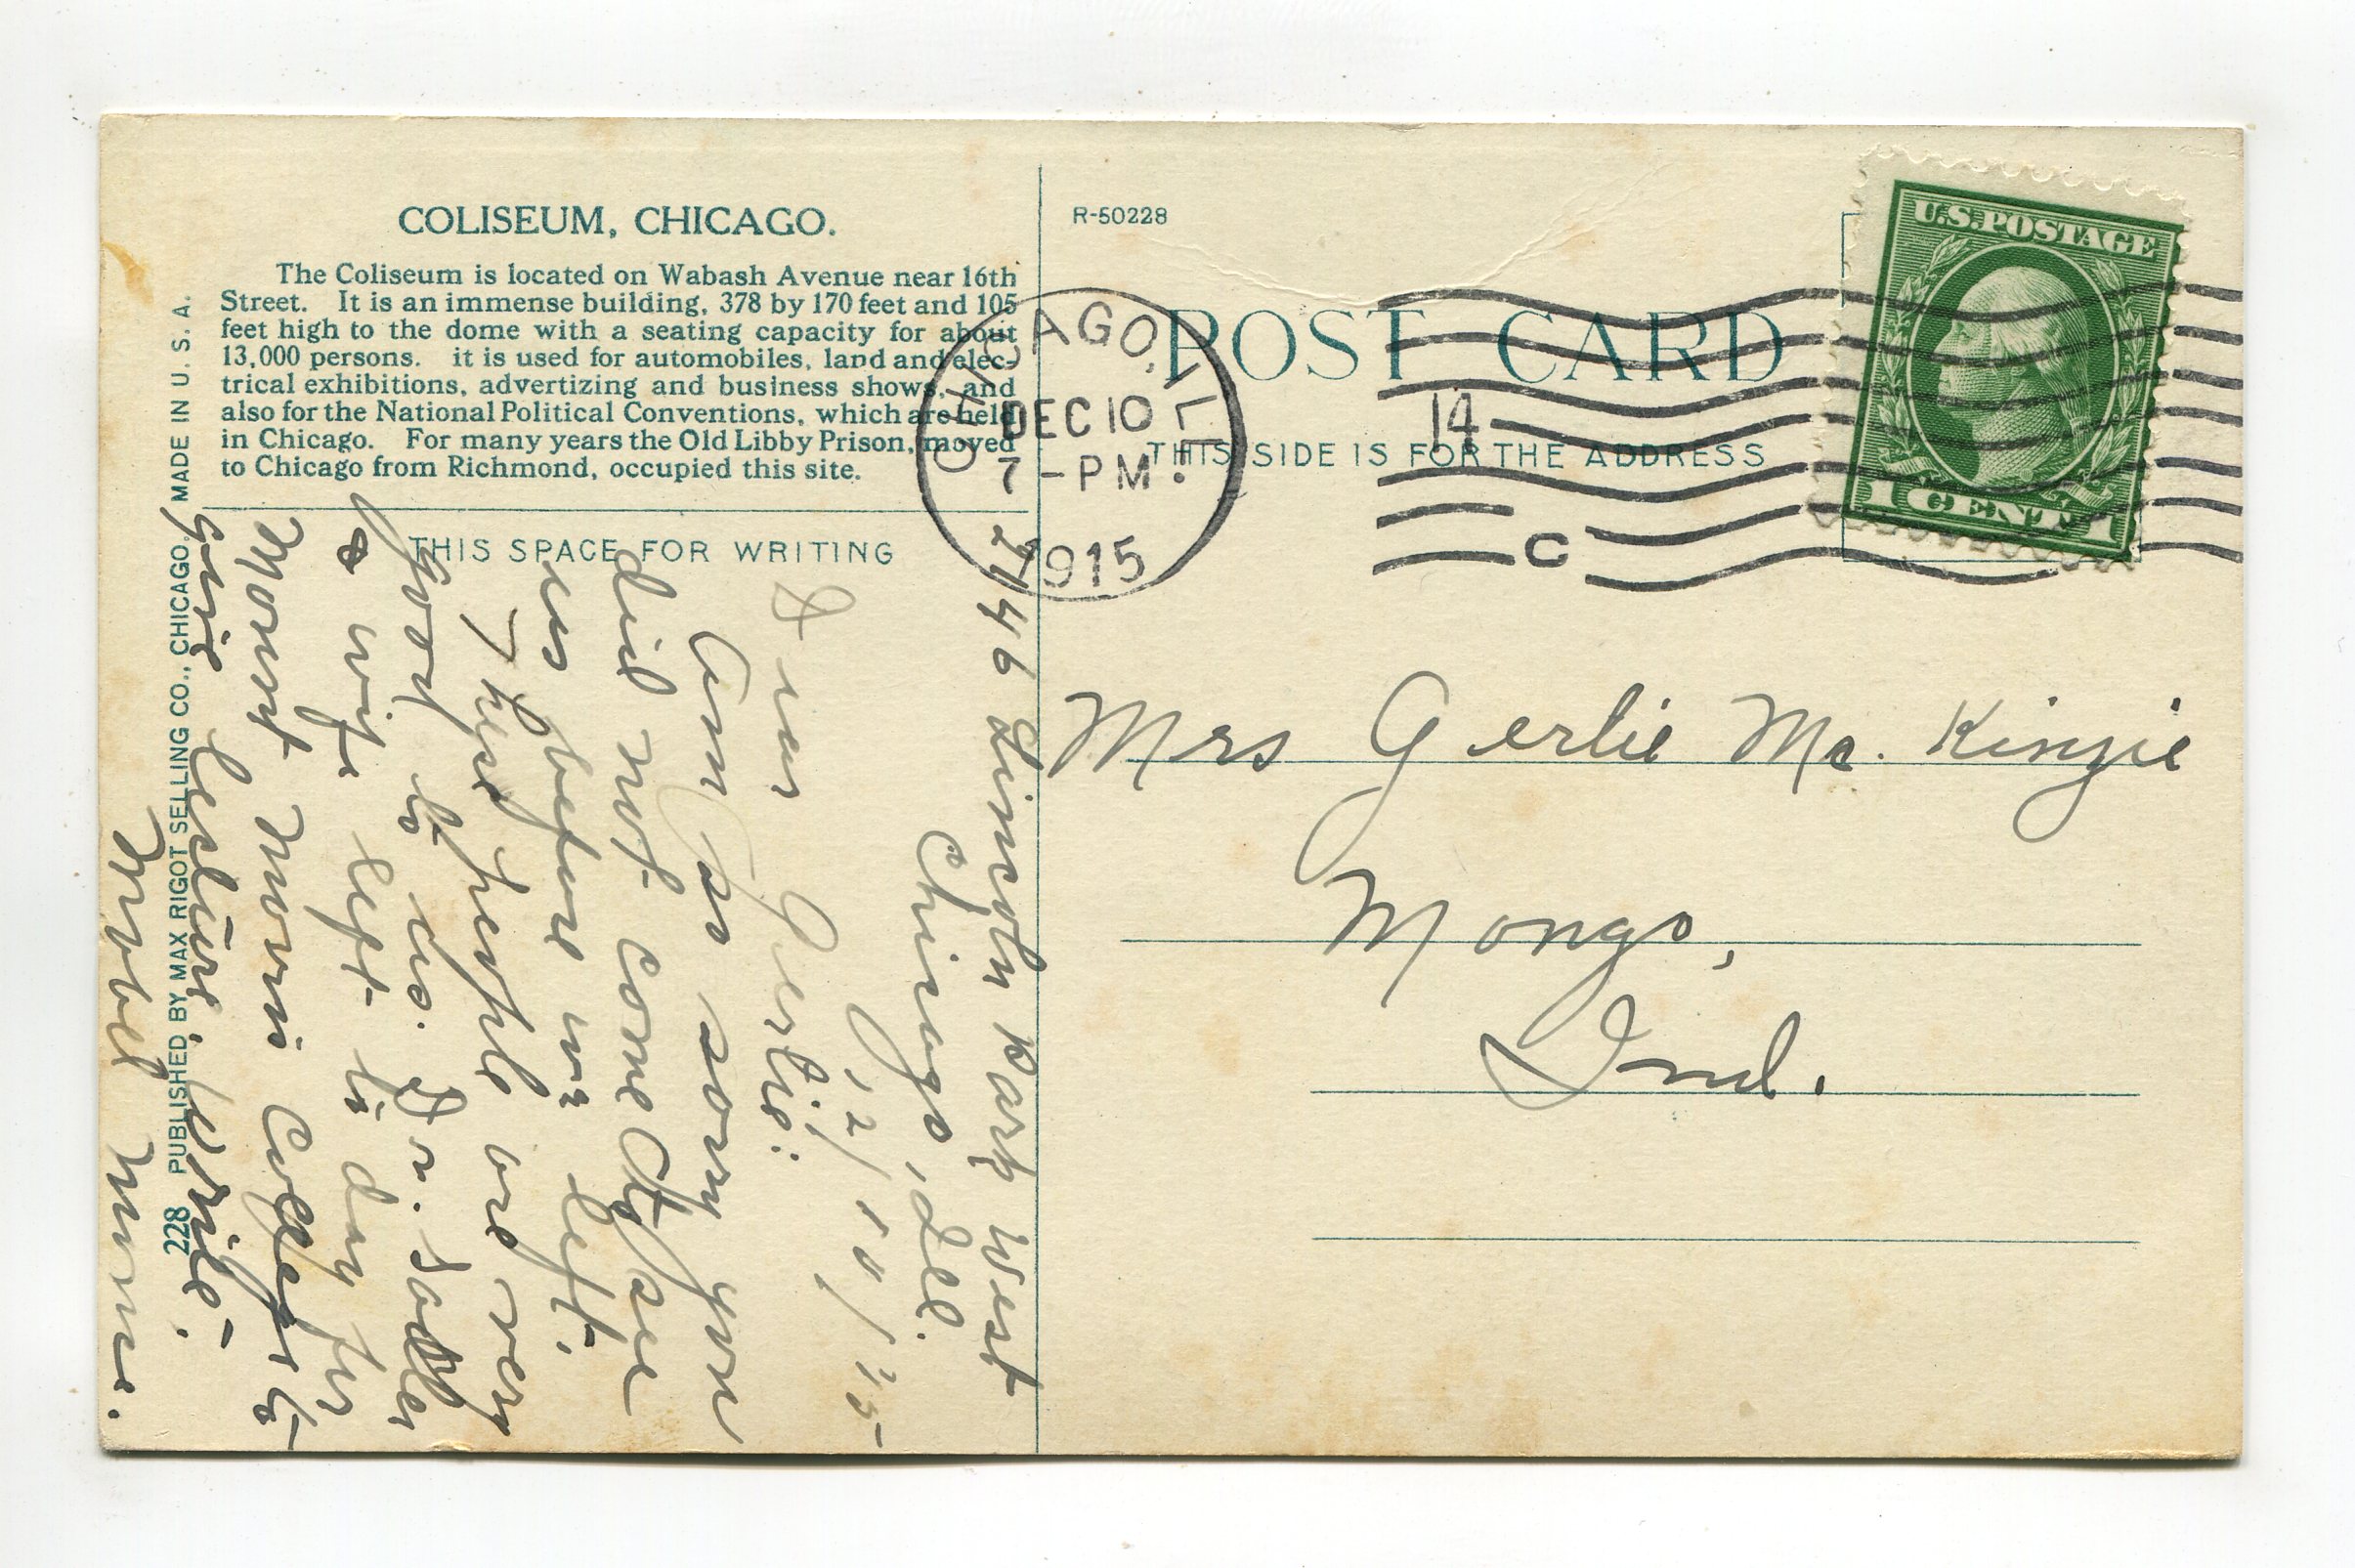 COLISEUM, CHICAGO.
The Coliseum is located on Wabash Avenue near 16th
Street. It is an immense building, 378 by 170 feet and 105
feet high to the dome with a seating capacity for about
13,000 persons. it is used for automobiles, land and elec-
trical exhibitions, advertizing and business shows, and
also for the National Political Conventions, which are held
in Chicago. For many years the Old Libby Prison, moved
to Chicago from Richmond, occupied this site.
THIS SPACE FOR WRITING
228 PUBLISHED BY MAX RIGOT SELLING CO., CHICAGO. MADE IN U. S. A.
R-50228
POST CARD
THIS SIDE IS FOR THE ADDRESS
U.S. POSTAGE
1 CENT 1
CHICAGO, ILL.
DEC 10
7-PM
1915
14
C
Mrs Gertie Mc. Kinzie
Mongo,
Ind.
2146 Lincoln Park West
Chicago, Ill.
12/10/15
Dear Gertie:
Am so sorry you
did not come to see
us before we left.
These people are very
good to us. Dr. Sadler
& wife left to day for
Mount Morris College to
give lecture. Write.
Mabel